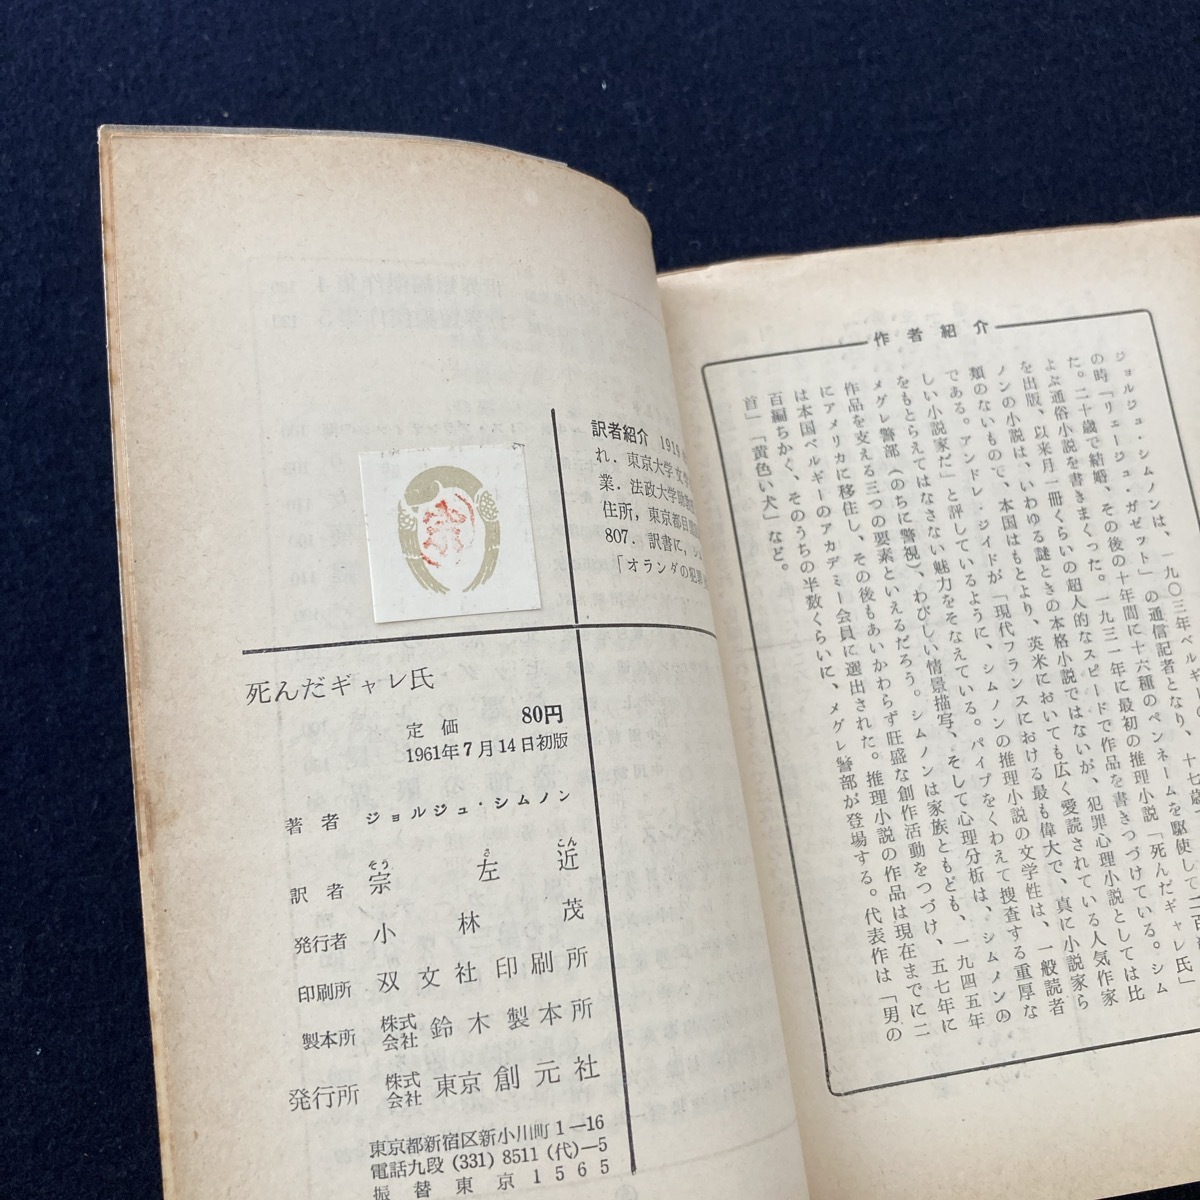 作者紹介
ジョルジュ・シムノンは、一九〇三年ベルギーの
の時「リエージュ・ガゼット」の通信記者となり、十七歳
た。二十歳で結婚、その後の十年間に十六種のペンネームを駆使して二百
よぶ通俗小説を書きまくった。一九三一年に最初の推理小説「死んだギャレ氏」
を出版、以来月一冊くらいの超人的なスピードで作品を書きつづけている。シム
ノンの小説は、いわゆる謎ときの本格小説ではないが、犯罪心理小説としては比
類のないもので、本国はもとより、英米においても広く愛読されている人気作家
である。アンドレ・ジイドが「現代フランスにおける最も偉大で、真に小説家ら
しい小説家だ」と評しているように、シムノンの推理小説の文学性は、一般読者
をもとらえてはなさない魅力をそなえている。パイプをくわえて捜査する重厚な
メグレ警部(のちに警視)、わびしい情景描写、そして心理分析は、シムノンの
作品を支える三つの要素といえるだろう。シムノンは家族ともども、一九四五年
にアメリカに移住し、その後もあいかわらず旺盛な創作活動をつづけ、五七年に
は本国ベルギーのアカデミー会員に選出された。推理小説の作品は現在までに二
百編ちかく、そのうちの半数くらいに、メグレ警部が登場する。代表作は「男の
首」「黄色い犬」など。
訳者紹介 1919
れ．東京大学文学
業．法政大学助教
住所，東京都目黒
807．訳書に，シ
「オランダの犯罪
宗
死んだギャレ氏
定価 80円
1961年7月14日初版
著者 ジョルジュ・シムノン
訳者 宗左近
そう さ こん
発行者 小林茂
印刷所 双文社印刷所
製本所 株式会社 鈴木製本所
発行所 株式会社 東京創元社
東京都新宿区新小川町1—16
電話九段 (331) 8511 (代)—5
振替東京 1565